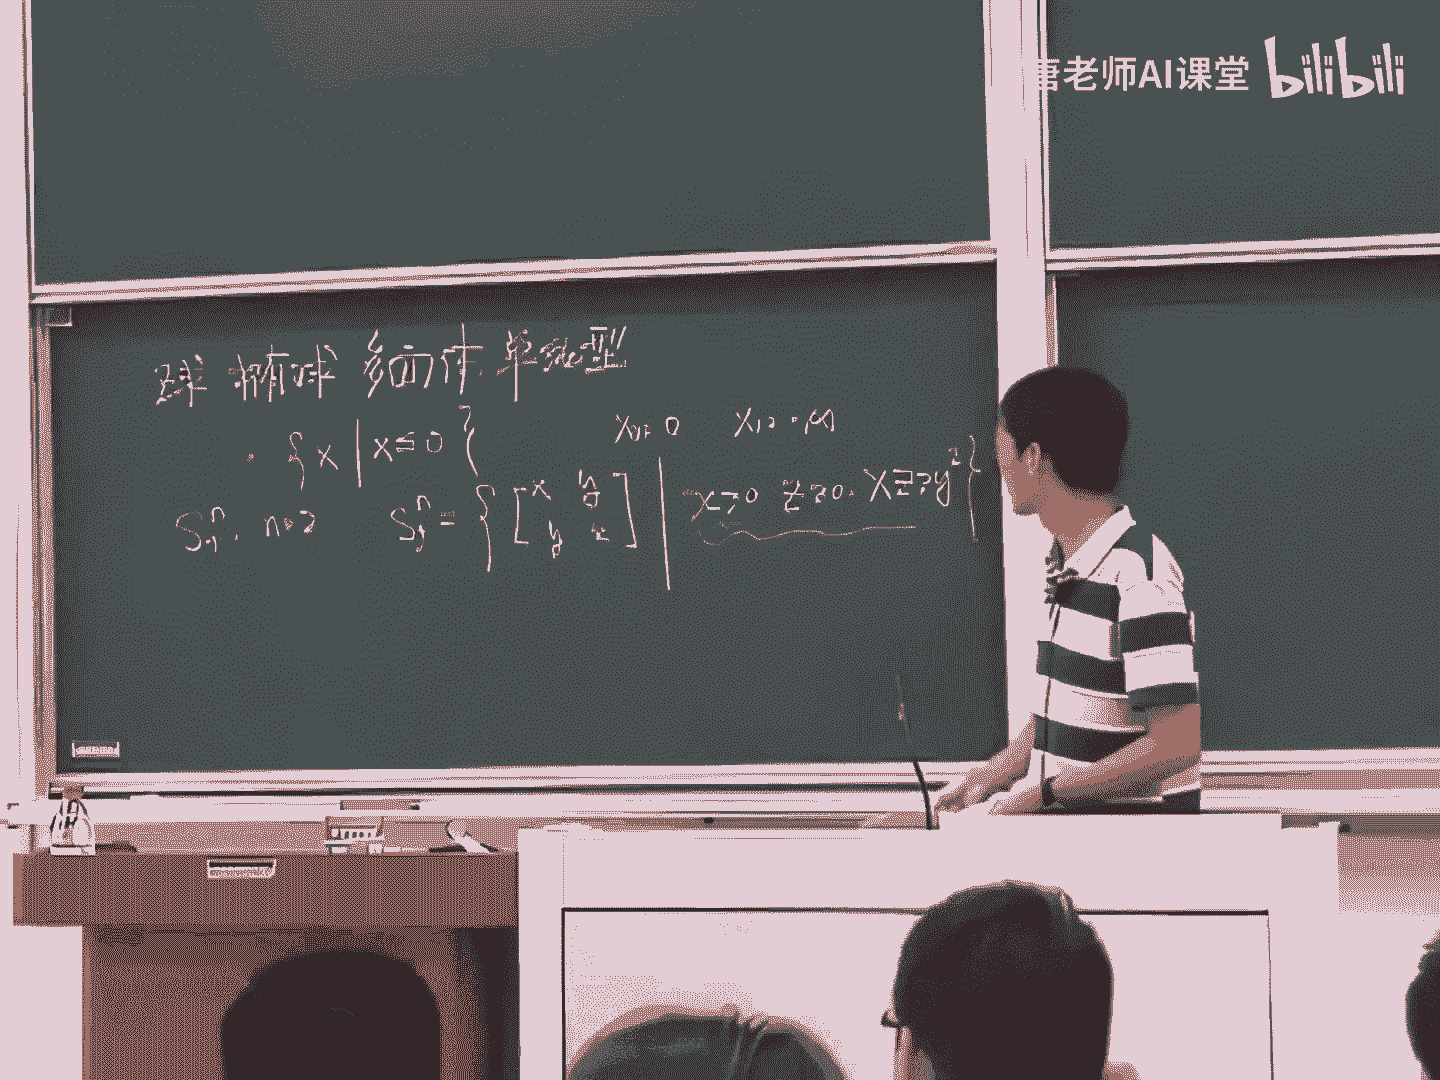 唐老师AI课堂 bilibili
球 椭球 多面体 单纯型
{x | x≤0} x₁,=0
S₊ⁿ. n=2 S₊ⁿ={[x y y z] | x≥0 z≥0. xz≥y²}